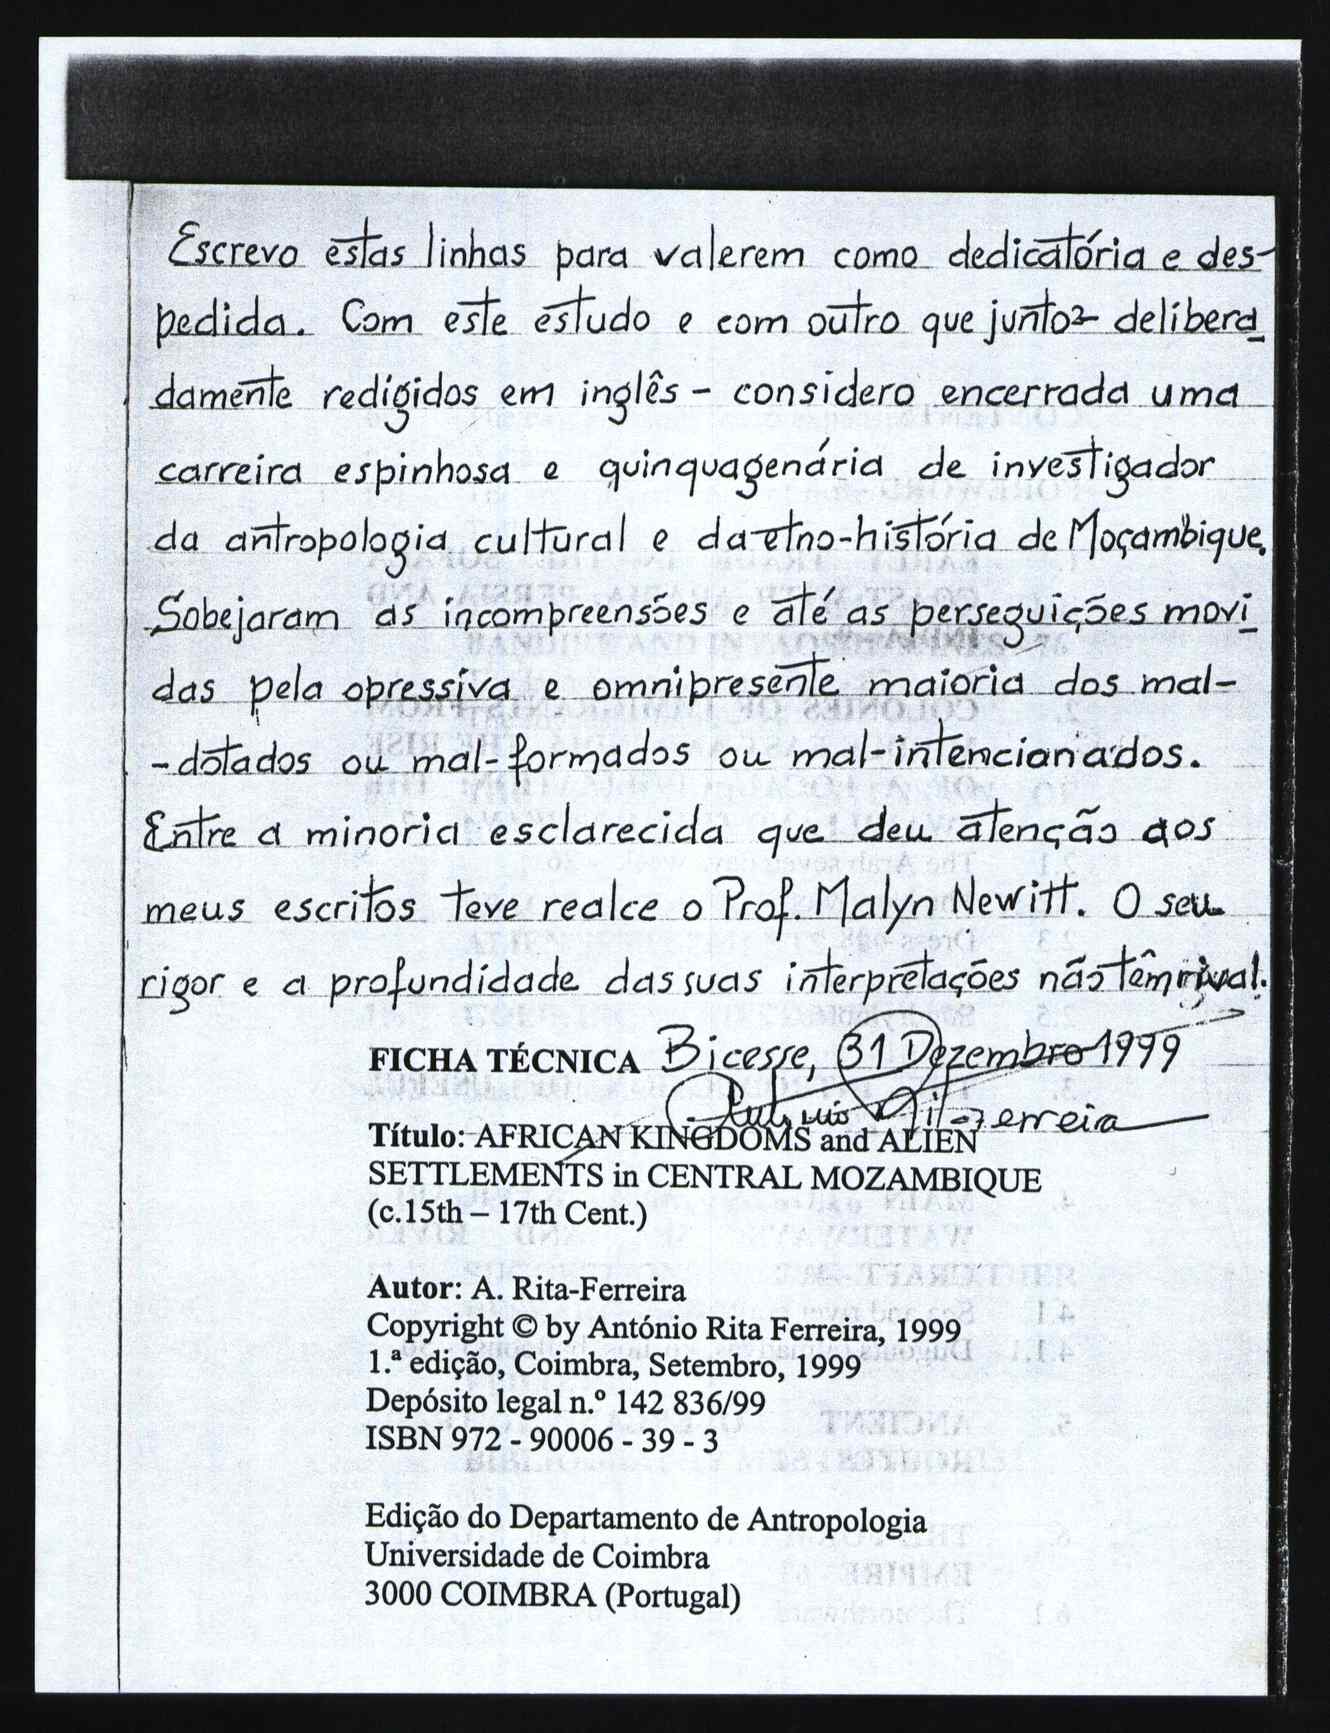 Escrevo estas linhas para valerem como dedicatória e des-
pedida. Com este estudo e com outro que junto - delibera
damente redigidos em inglês - considero encerrada uma
carreira espinhosa e quinquagenária de investigador
da antropologia cultural e da etno-história de Moçambique.
Sobejaram as incompreensões e até as perseguições movi
das pela opressiva e omnipresente maioria dos mal-
-dotados ou mal-formados ou mal-intencionados.
Entre a minoria esclarecida que deu atenção aos
meus escritos teve realce o Prof. Malyn Newitt. O seu
rigor e a profundidade das suas interpretações não têm rival.
FICHA TÉCNICA Bicesse, 31 Dezembro 1999
António Rita-Ferreira
Título: AFRICAN KINGDOMS and ALIEN
SETTLEMENTS in CENTRAL MOZAMBIQUE
(c.15th – 17th Cent.)
Autor: A. Rita-Ferreira
Copyright © by António Rita Ferreira, 1999
1.ª edição, Coimbra, Setembro, 1999
Depósito legal n.º 142 836/99
ISBN 972 - 90006 - 39 - 3
Edição do Departamento de Antropologia
Universidade de Coimbra
3000 COIMBRA (Portugal)